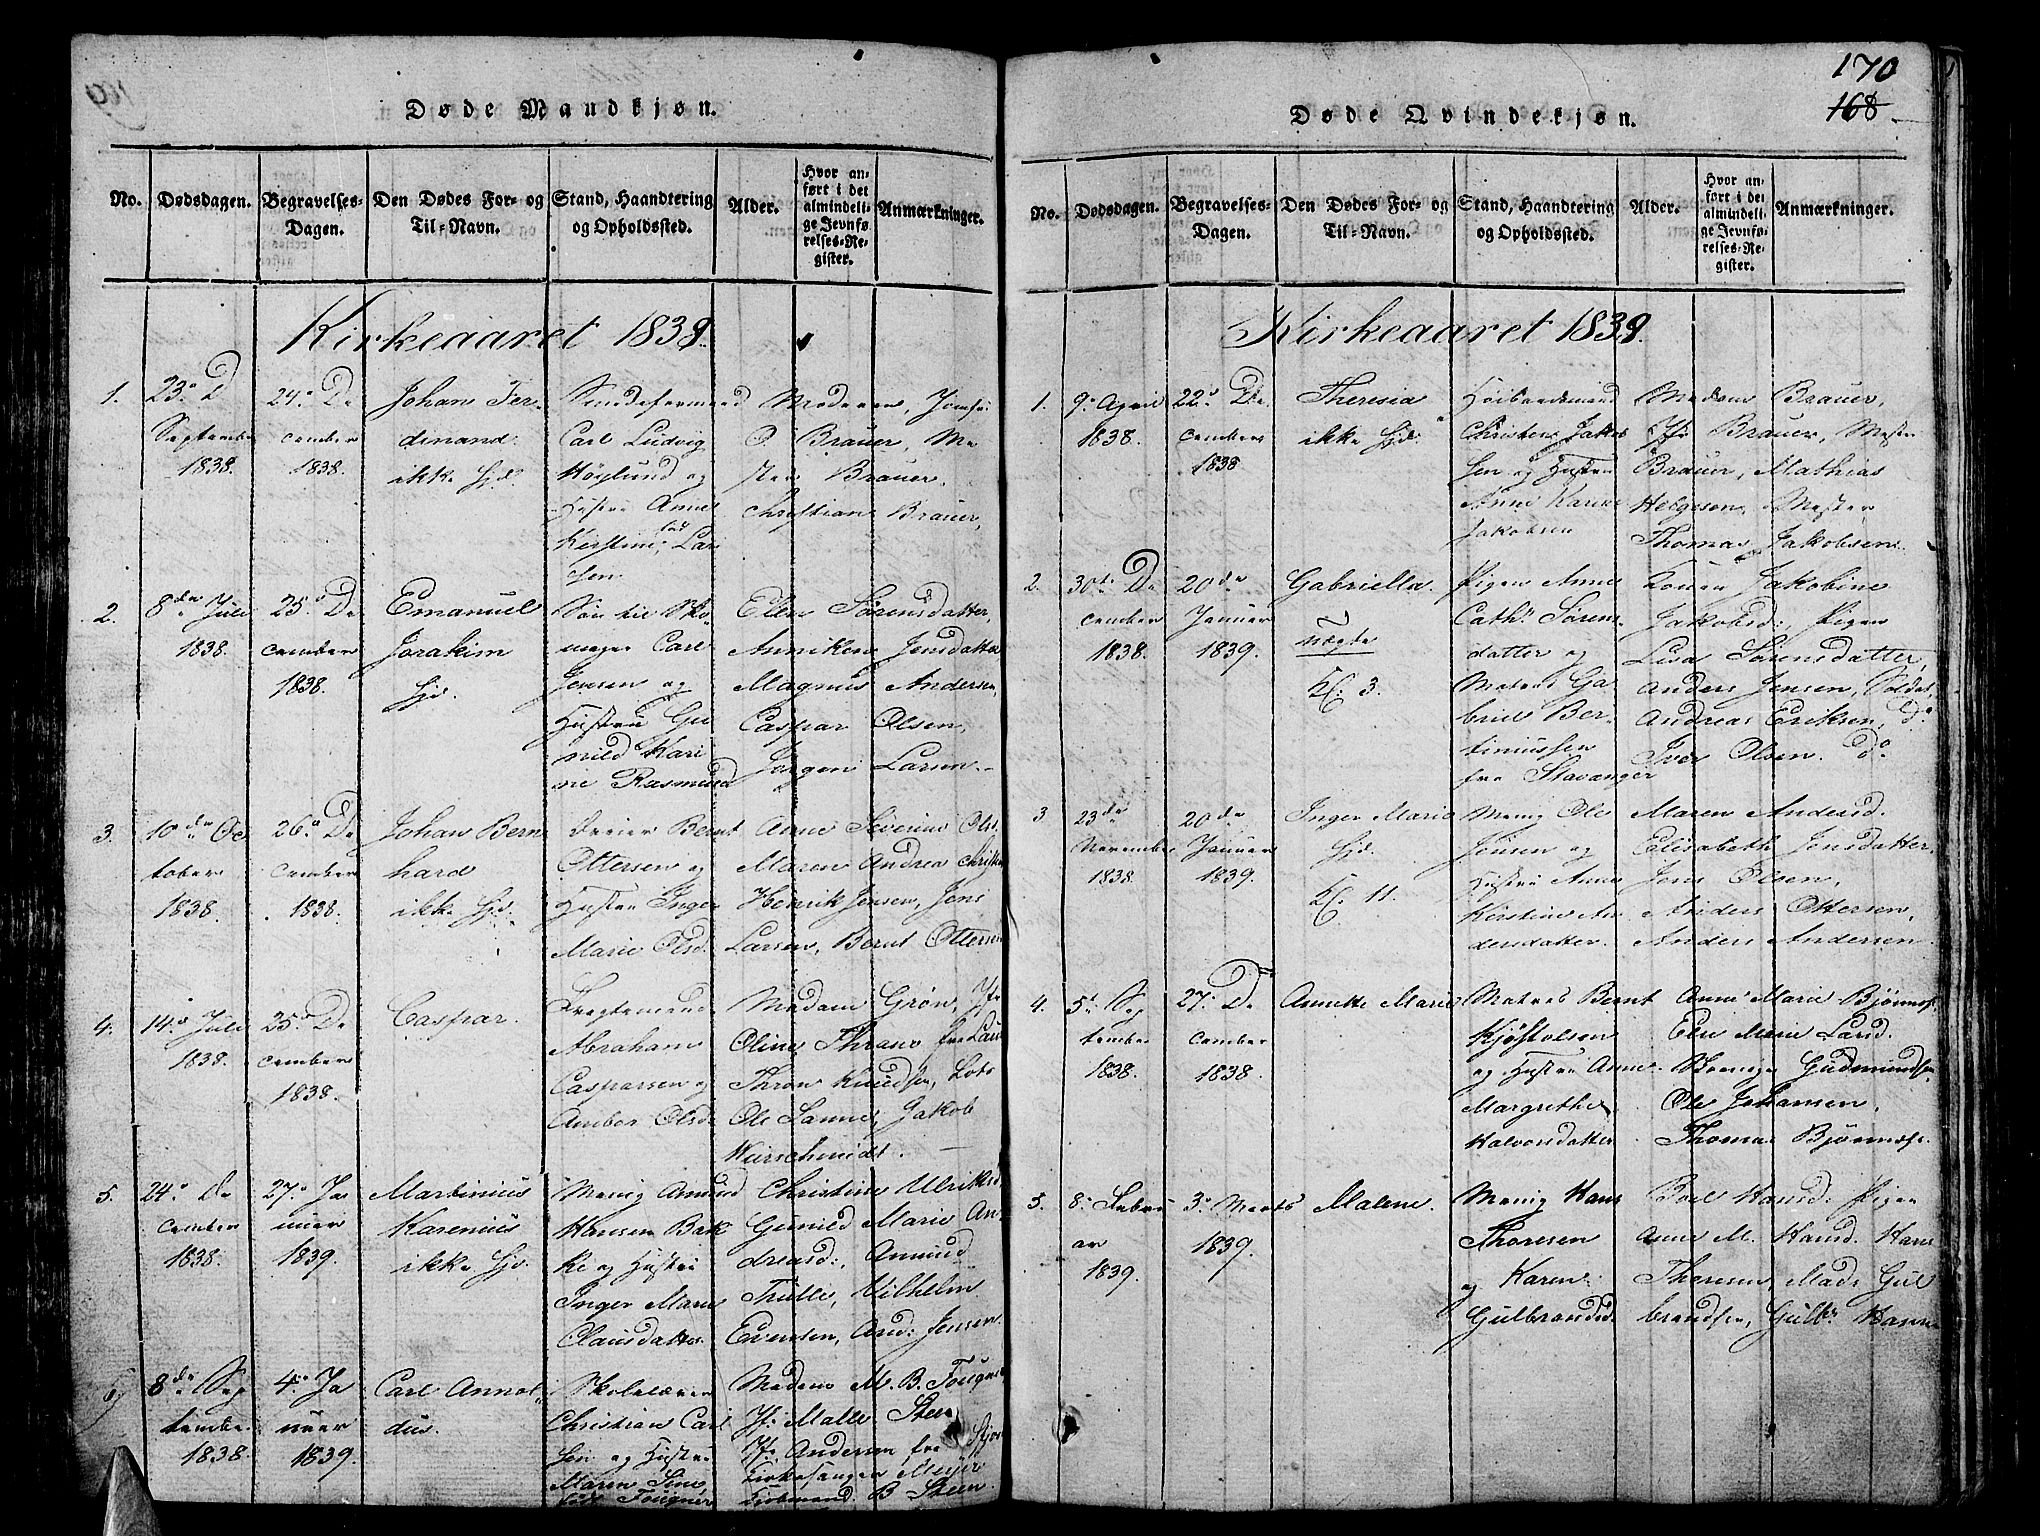 170
168
Døde Mandkjøn.
No.
Dødsdagen.
Begravelses-
Dagen.
Den Dødes For- og
Til-Navn.
Stand, Haandtering
og Opholdssted.
Alder.
Hvor an-
ført i det
almindeli-
ge Jevnfø-
relses-Re-
gister.
Anmærkninger.
Kirkeaaret 1839.
1.
23. D
September
1838.
24. De
cember
1838.
Johan Fer-
dinand.
ikke hjd.
Carl Ludvig
Höglund og
Hustru Anne
Kirstine Lar
sen
Moderen, Jomfr:
O. Brauer, Me
ster Brauer.
Christian Brauer,
2.
8de Juli
1838.
25. De
cember
1838.
Emanuel
Jorakim
hjd.
Søn til Sko-
mager Carl
Jensen og
Hustru Gu
nild Kari
ne Rasmusd
Elen Sørensdatter,
Anniken Jensdatter
Magnus Andersen,
Caspar Olsen,
Jørgen Larsen.
3.
10de Oc
tober
1838.
26. De
cember
1838.
Johan Bern
hard
ikke hjd.
Dreier Bernt
Ottersen og
Hustru Inger
Marie Olsd.
Anne Severine Olsd.
Maren Andrea Christ
Henrik Jensen, Jens
Larsen, Bernt Ottersen
4.
14. Juli
1838.
25. De
cember
1838.
Caspar.
Abraham
Casparsen og
Ambor Olsd.
Madam Grøn, Jfr
Oline Thrane fra Laur
Thron Knudsen, Lods
Ole Sanne, Jakob
Kurschmidt.
5.
24. De
cember
1838.
27. Ja
nuar
1839.
Martinius
Karenius
ikke hjd.
Menig Amund
Hansen Bak
ke og Hustru
Inger Marie
Clausdatter.
Christine Ulriksd
Gunild Marie An
dreasd:, Amund
Trulle, Vilhelm
Evensen, And: Jensen.
6.
8de Sep
tember
1838.
4. Ja
nuar
1839.
Carl Annol
dus.
Skolelærer
Christian Carl
sen og Hustru
Maren Sine
Fougner
Madam M. B. Fougner
Jf: Malle Steen
Jfr Andersen fra
Kirkesanger Meyer
Kjøbmand B Steen
Døde Qvindekjøn.
No.
Dødsdagen.
Begravelses-
Dagen.
Den Dødes For- og
Til-Navn.
Stand, Haandtering
og Opholdssted.
Alder.
Hvor an-
ført i det
almindeli-
ge Jevnfø-
relses-Re-
gister.
Anmærkninger.
Kirkeaaret 1839.
1.
9. April
1838.
22. De
cember
1838
Theresia
ikke hjd.
Christen Jakob
sen og Hustru
Anne Karine
Jakobsen
Madam Brauer,
Jfr Brauer, Mester
Brauer, Mathias
Helgesen, Mester
Thomas Jakobsen.
2.
30te De
cember
1838.
20de
Januar
1839.
Gabriella.
uægte
Kl: 3.
Pigen Anne
Cath: Sørens
datter og
Matros Ga
briel Ber
tiniussen
fra Stavanger
Konen Jakobine
Jakobsd:, Pigen
Lisa Sørensdatter,
Anders Jensen, Soldat,
Andreas Eriksen, do
Iver Olsen. do
3
23de
November
1838.
20de
Januar
1839.
Inger Marie
hjd.
Kl. 11.
Menig Ole
Jensen og
Hustru Anne
Kirstine An
dersdatter.
Maren Andersd.
Elisabeth Jensdatter.
Jens Olsen,
Anders Ottersen,
Anders Andersen.
4.
5te Sep
tember
1838.
27. De
cember
1838.
Annette Marie
Matros Bernt
Kjøstolsen
og Hustru Anne
Margrethe
Halvorsdatter
Anne Marie Bjønnes.
Else Marie Larsd.
Gudmundsen
Ole Johansen,
Thomas Bjønness.
5.
8. Febru
ar
1839.
3. Marts
1839.
Malene.
Menig Hans
Thoresen
og Karen
Gulbrandsd.
Boel Hansd: Pigen
Anne M. Hansd. Hans
Thoresen, Mads Gul
brandsen, Gulb: Hansen